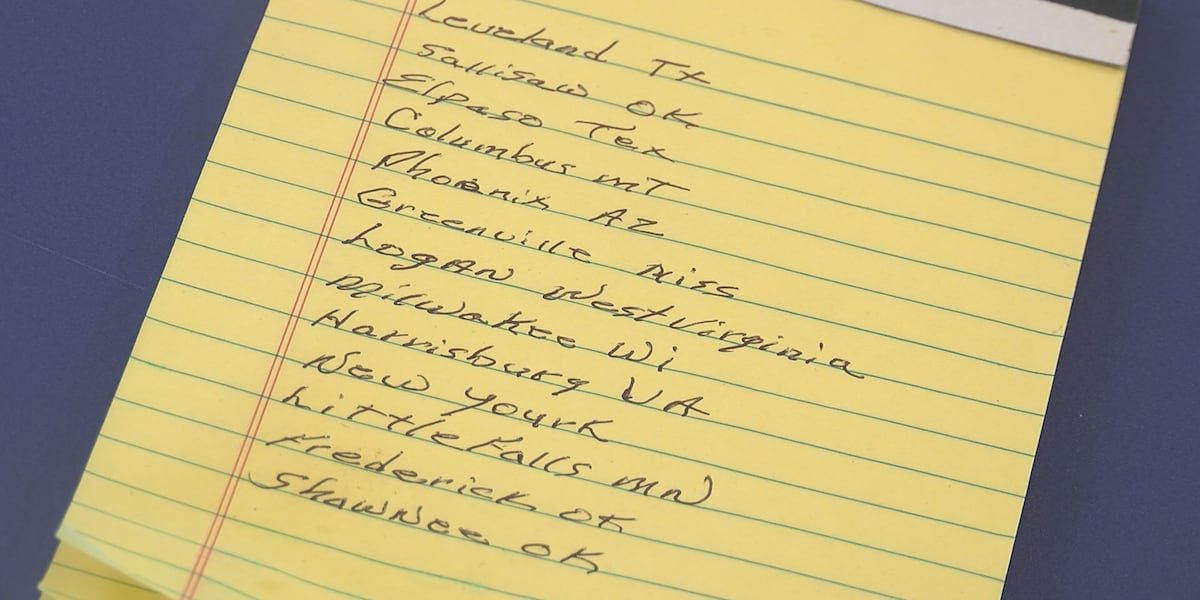 Leveland Tx
Sallisaw OK
Elpaso Tex
Columbus MT
Phoenix AZ
Greenville Miss
Logan West Virginia
Milwakee Wi
Harrisburg VA
New Yourk
Little Falls MN
Frederick OK
Shawnee OK